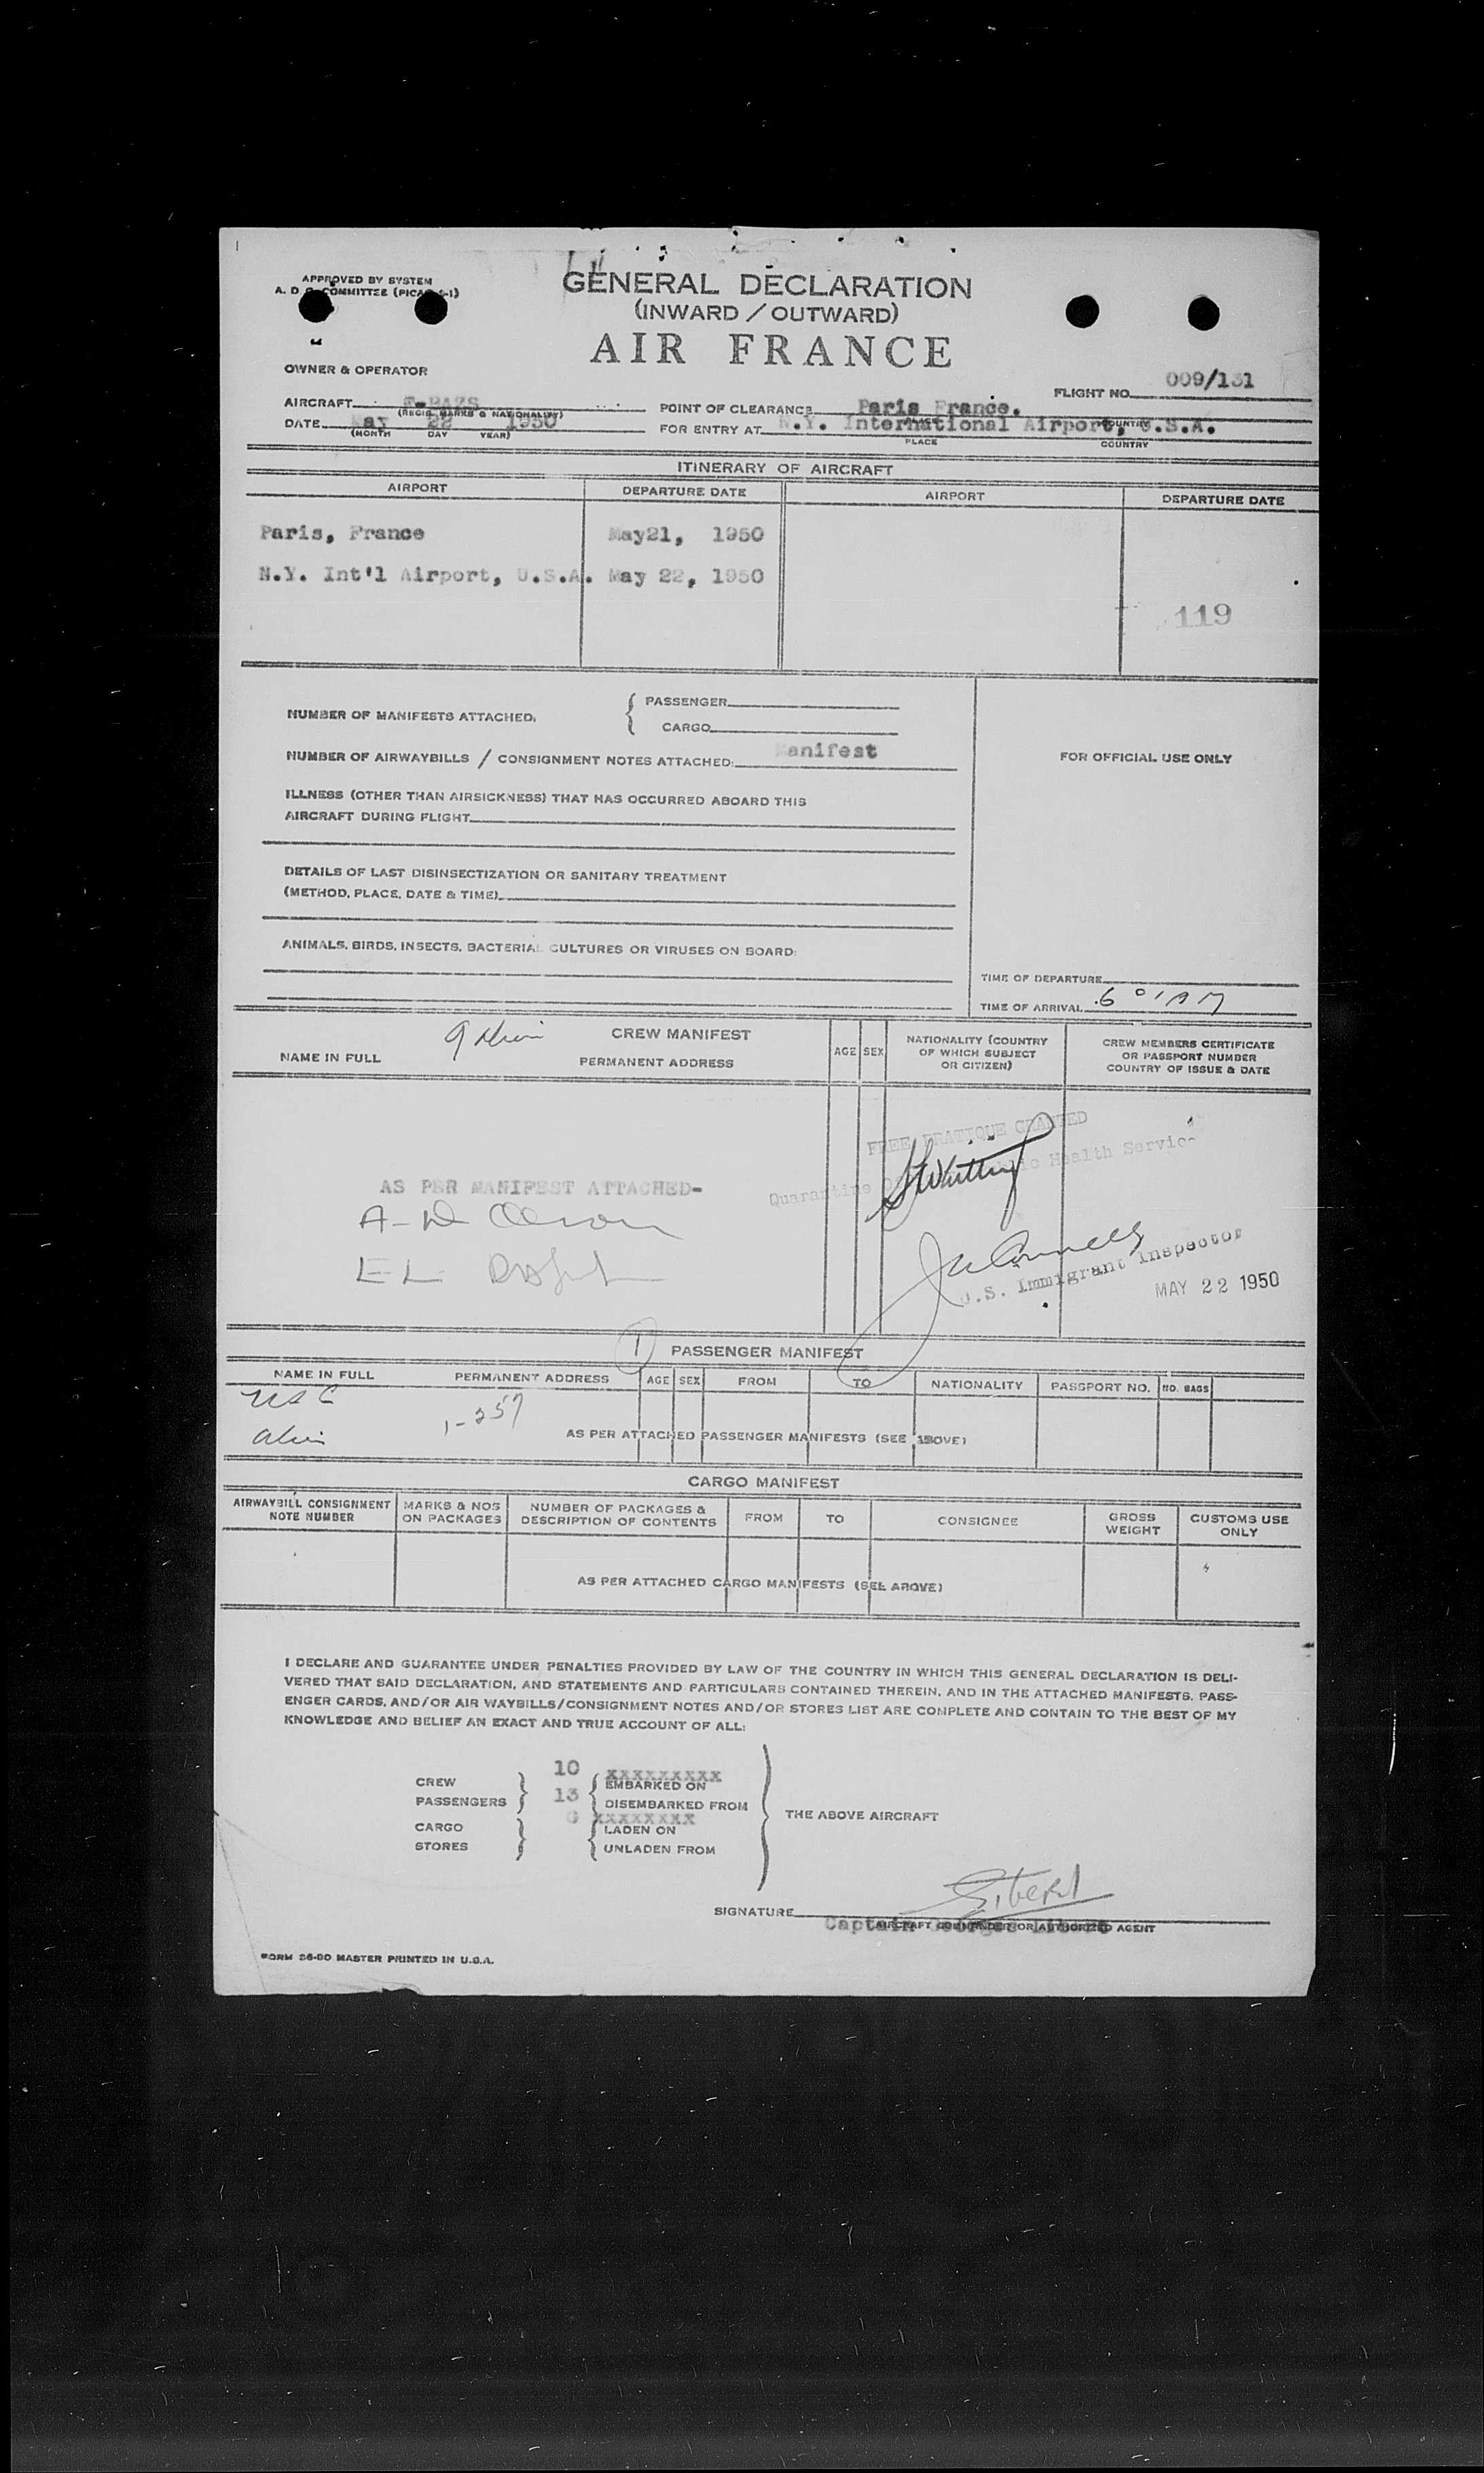 APPROVED BY SYSTEM
GENERAL DECLARATION
(INWARD / OUTWARD)
AIR FRANCE
OWNER & OPERATOR
FLIGHT NO. 009/131
AIRCRAFT F-BAZS
(REGIS. MARKS & NATIONALITY)
POINT OF CLEARANCE Paris France.
COUNTRY
DATE May 22 1950
(MONTH DAY YEAR)
FOR ENTRY AT N.Y. International Airport, U.S.A.
PLACE COUNTRY
ITINERARY OF AIRCRAFT
AIRPORT DEPARTURE DATE AIRPORT DEPARTURE DATE
Paris, France May21, 1950
N.Y. Int'l Airport, U.S.A. May 22, 1950
119
NUMBER OF MANIFESTS ATTACHED: PASSENGER
CARGO
NUMBER OF AIRWAYBILLS / CONSIGNMENT NOTES ATTACHED: Manifest
FOR OFFICIAL USE ONLY
ILLNESS (OTHER THAN AIRSICKNESS) THAT HAS OCCURRED ABOARD THIS
AIRCRAFT DURING FLIGHT
DETAILS OF LAST DISINSECTIZATION OR SANITARY TREATMENT
(METHOD, PLACE, DATE & TIME)
ANIMALS, BIRDS, INSECTS, BACTERIAL CULTURES OR VIRUSES ON BOARD:
TIME OF DEPARTURE
TIME OF ARRIVAL 6 01 AM
CREW MANIFEST
NAME IN FULL PERMANENT ADDRESS AGE SEX NATIONALITY (COUNTRY OF WHICH SUBJECT OR CITIZEN) CREW MEMBERS CERTIFICATE OR PASSPORT NUMBER COUNTRY OF ISSUE & DATE
FREE PRATIQUE GRANTED
Quarantine Public Health Service
AS PER MANIFEST ATTACHED-
U.S. Immigrant Inspector
MAY 22 1950
1 PASSENGER MANIFEST
NAME IN FULL PERMANENT ADDRESS AGE SEX FROM TO NATIONALITY PASSPORT NO. NO. BAGS
1-257
AS PER ATTACHED PASSENGER MANIFESTS (SEE ABOVE)
CARGO MANIFEST
AIRWAYBILL CONSIGNMENT NOTE NUMBER MARKS & NOS ON PACKAGES NUMBER OF PACKAGES & DESCRIPTION OF CONTENTS FROM TO CONSIGNEE GROSS WEIGHT CUSTOMS USE ONLY
AS PER ATTACHED CARGO MANIFESTS (SEE ABOVE)
I DECLARE AND GUARANTEE UNDER PENALTIES PROVIDED BY LAW OF THE COUNTRY IN WHICH THIS GENERAL DECLARATION IS DELI-
VERED THAT SAID DECLARATION, AND STATEMENTS AND PARTICULARS CONTAINED THEREIN, AND IN THE ATTACHED MANIFESTS, PASS-
ENGER CARDS, AND/OR AIR WAYBILLS/CONSIGNMENT NOTES AND/OR STORES LIST ARE COMPLETE AND CONTAIN TO THE BEST OF MY
KNOWLEDGE AND BELIEF AN EXACT AND TRUE ACCOUNT OF ALL:
CREW 10 XXXXXXXXX EMBARKED ON
PASSENGERS 13 DISEMBARKED FROM
THE ABOVE AIRCRAFT
CARGO XXXXXXXX LADEN ON
STORES UNLADEN FROM
SIGNATURE
Captain
AIRCRAFT COMMANDER OR AUTHORIZED AGENT
FORM 26-80 MASTER PRINTED IN U.S.A.